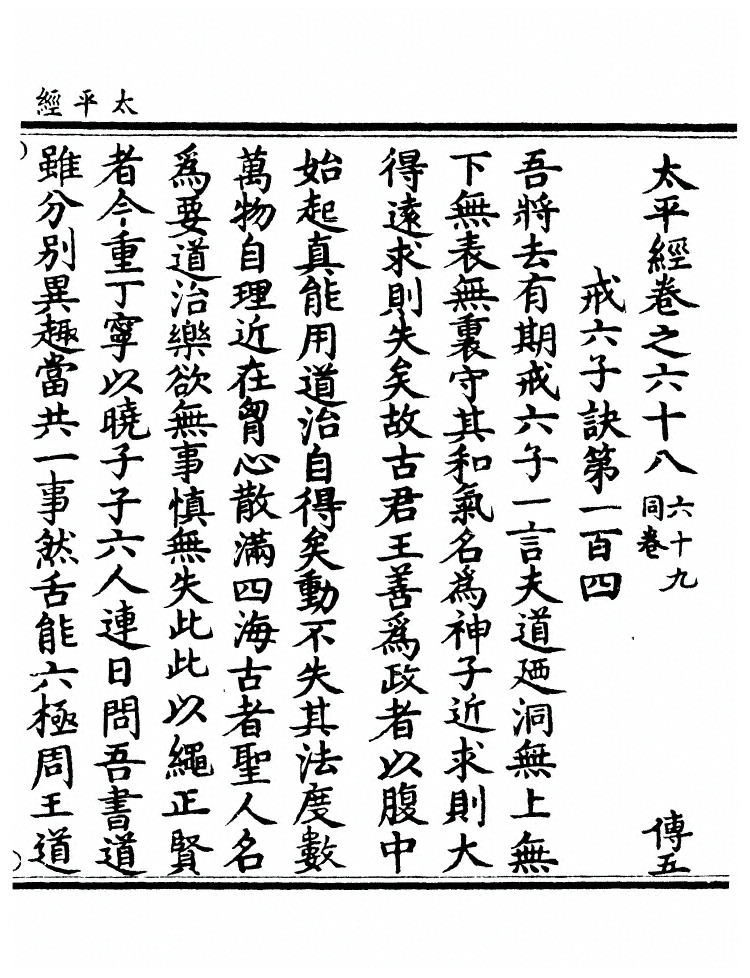 太平經
太平經卷之六十八 六十九同卷 傳五
戒六子訣第一百四
吾將去有期戒六子一言夫道廼洞無上無
下無表無裏守其和氣名為神子近求則大
得遠求則失矣故古君王善為政者以腹中
始起真能用道治自得矣動不失其法度數
萬物自理近在胷心散滿四海古者聖人名
為要道治樂欲無事慎無失此此以繩正賢
者今重丁寧以曉子子六人連日問吾書道
雖分別異趣當共一事然舌能六極周王道